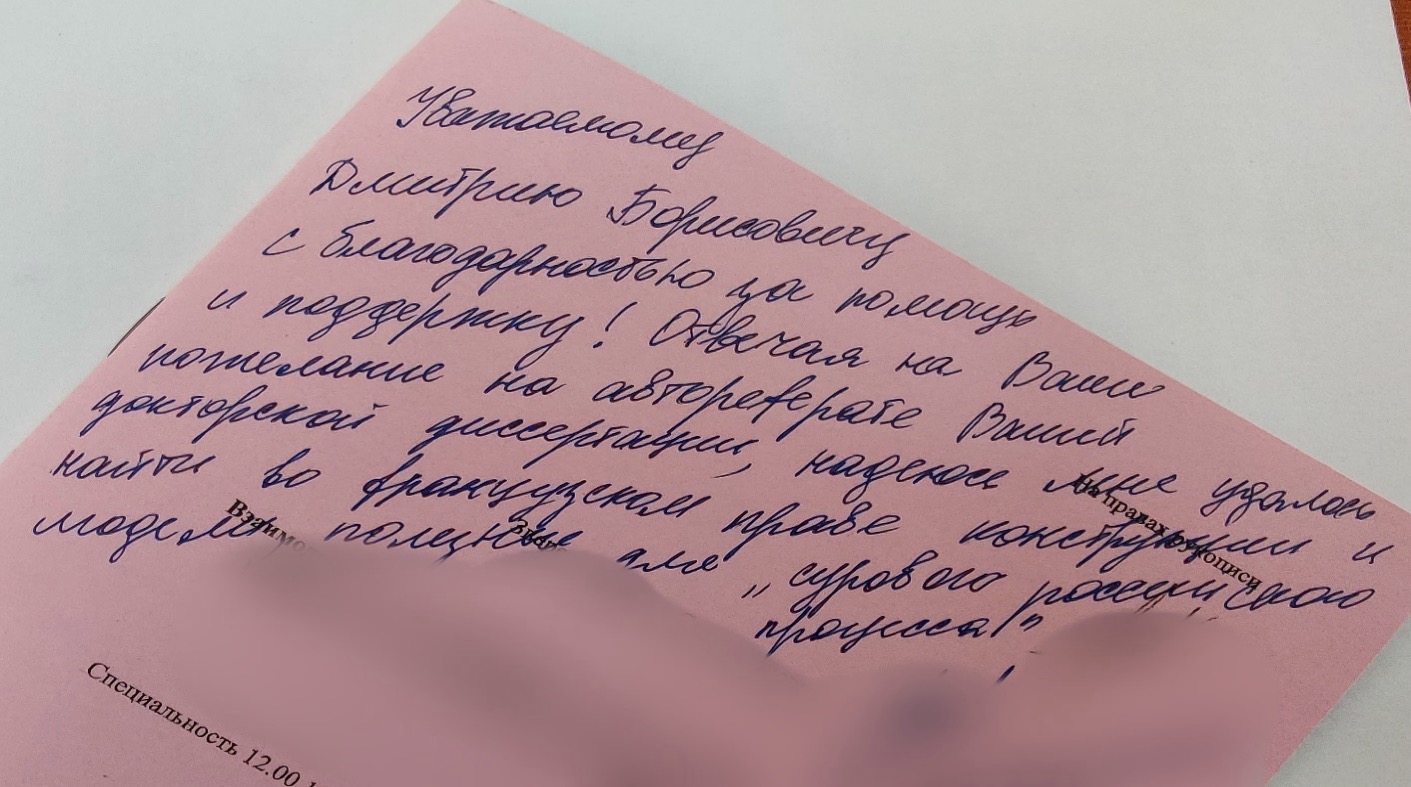 Уважаемому
Дмитрию Борисовичу
с благодарностью за помощь
и поддержку! Отвечая на Ваше
пожелание на автореферате Вашей
докторской диссертации, надеюсь мне удалось
найти во французском праве конструкции и
модели, полезные для „сурового российского
процесса!”
На правах рукописи
Специальность 12.00